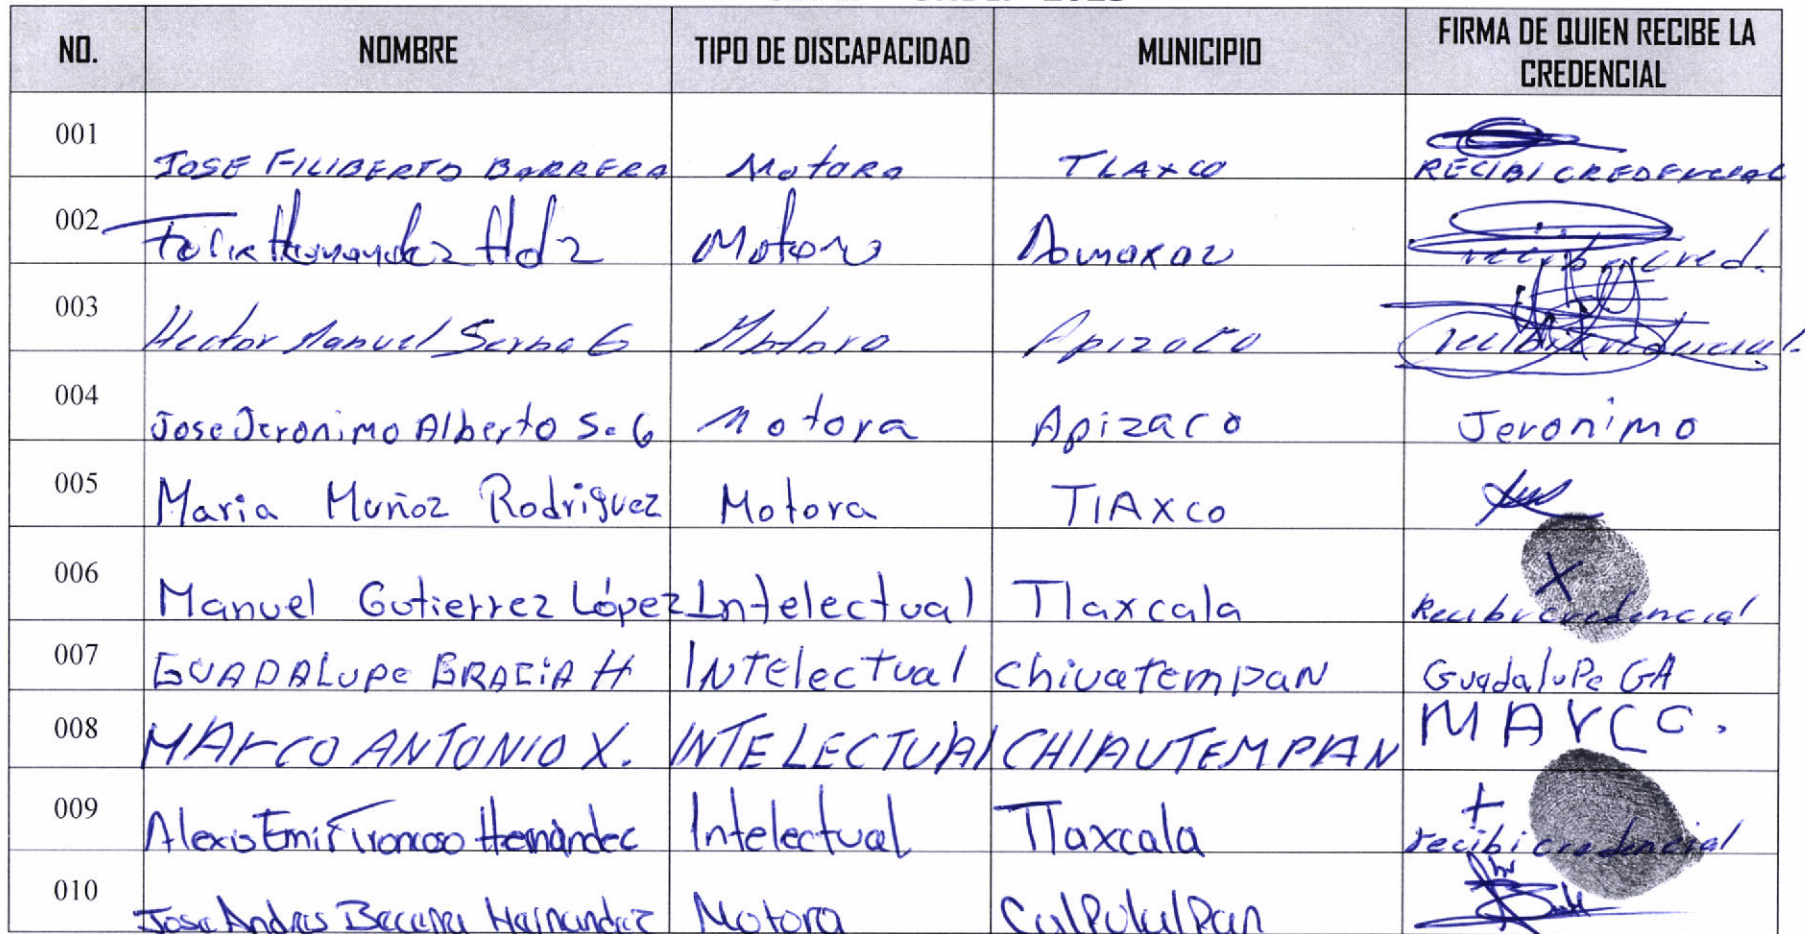 NO. NOMBRE TIPO DE DISCAPACIDAD MUNICIPIO FIRMA DE QUIEN RECIBE LA CREDENCIAL
001 JOSE FILIBERTO BARRERA Motora TLAXCO RECIBI CREDENCIAL
002 Felix Hernandez Hdz Motora recibi cred.
003 Hector Manuel Serna G Motora Apizaco recibi credencial.
004 Jose Jeronimo Alberto S. G Motora Apizaco Jeronimo
005 Maria Muñoz Rodriguez Motora TlAxco
006 Manuel Gutierrez López Intelectual Tlaxcala X Recibi credencial
007 GUADALUPE GRACIA H INTelectual chiuatempaN GuadaluPe GA
008 MArCO ANTONIO X. INTELECTUAl CHIAUTEMPAN MArCO.
009 Alexis Emir Troncoso Hernández Intelectual Tlaxcala + recibi credencial
010 Jose Andres Becerra Hernandez Motora CalPulalPan